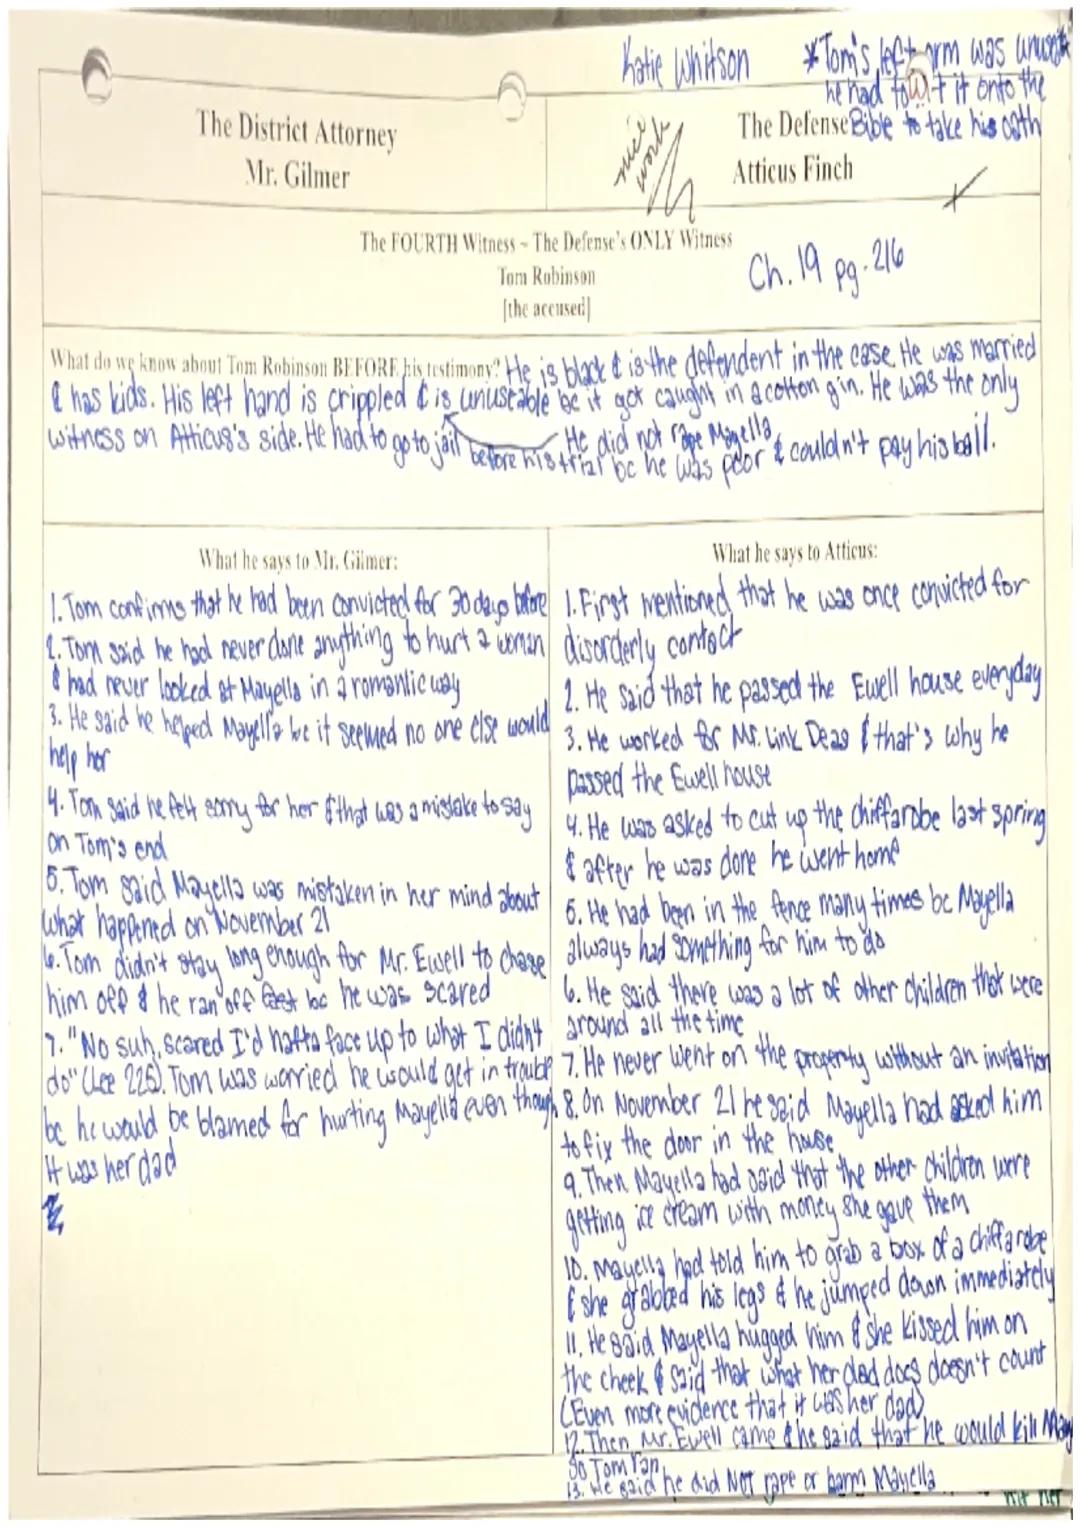 Katie Whitson
*Tom's left arm was
he had to it onto the
Bible to take his oath
The District Attorney
Mr. Gilmer
nice
work
The Defense
Atticus Finch
The FOURTH Witness ~ The Defense's ONLY Witness
Tom Robinson
[the accused]
Ch. 19 pg. 216
What do we know about Tom Robinson BEFORE his testimony? He is black & is the defendent in the case. He was married
& has kids. His left hand is crippled & is unuseable bc it got caught in a cotton gin. He was the only
witness on Atticus's side. He had to go to jail before his trial bc he was poor & couldn't pay his bail.
He did not rape Mayella
What he says to Mr. Gilmer:
1. Tom confirms that he had been convicted for 30 days before
2. Tom said he had never done anything to hurt a woman
& had never looked at Mayella in a romantic way
3. He said he helped Mayella bc it seemed no one else would
help her
4. Tom said he felt sorry for her & that was a mistake to say
on Tom's end
5. Tom said Mayella was mistaken in her mind about
what happened on November 21
6. Tom didn't stay long enough for Mr. Ewell to chase
him off & he ran off bc he was scared
7. "No suh, scared I'd hafta face up to what I didn't
do" (Lee 225). Tom was worried he would get in trouble
bc he would be blamed for hurting Mayella even though
it was her dad
What he says to Atticus:
1. First mentioned that he was once convicted for
disorderly contact
2. He said that he passed the Ewell house everyday
3. He worked for Mr. Link Deas & that's why he
passed the Ewell house
4. He was asked to cut up the chiffarobe last spring
& after he was done he went home
5. He had been in the fence many times bc Mayella
always had something for him to do
6. He said there was a lot of other children that were
around all the time
7. He never went on the property without an invitation
8. On November 21 he said Mayella had asked him
to fix the door in the house
9. Then Mayella had said that the other children were
getting ice cream with money she gave them
10. Mayella had told him to grab a box of a chiffarobe
& she grabbed his legs & he jumped down immediately
11. He said Mayella hugged him & she kissed him on
the cheek & said that what her dad does doesn't count
(Even more evidence that it was her dad)
12. Then Mr. Ewell came & he said that he would kill May
so Tom ran
13. He said he did NOT rape or harm Mayella